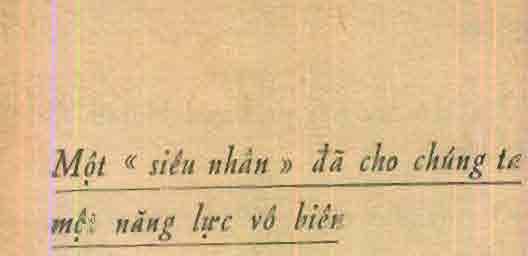 Một « siêu nhân » đã cho chúng ta
một năng lực vô biên